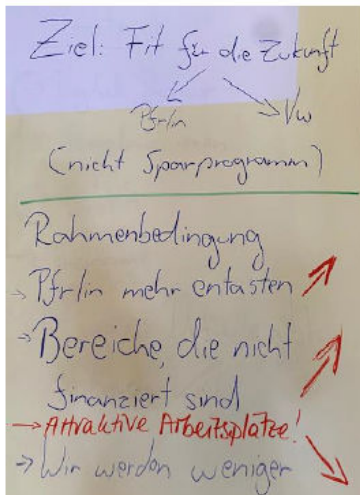 Ziel: Fit für die Zukunft
Pfr/in Vw
(nicht Sparprogramm)
Rahmenbedingung
→ Pfr/in mehr entasten
→ Bereiche, die nicht
finanziert sind
→ Attraktive Arbeitsplätze!
→ Wir werden weniger